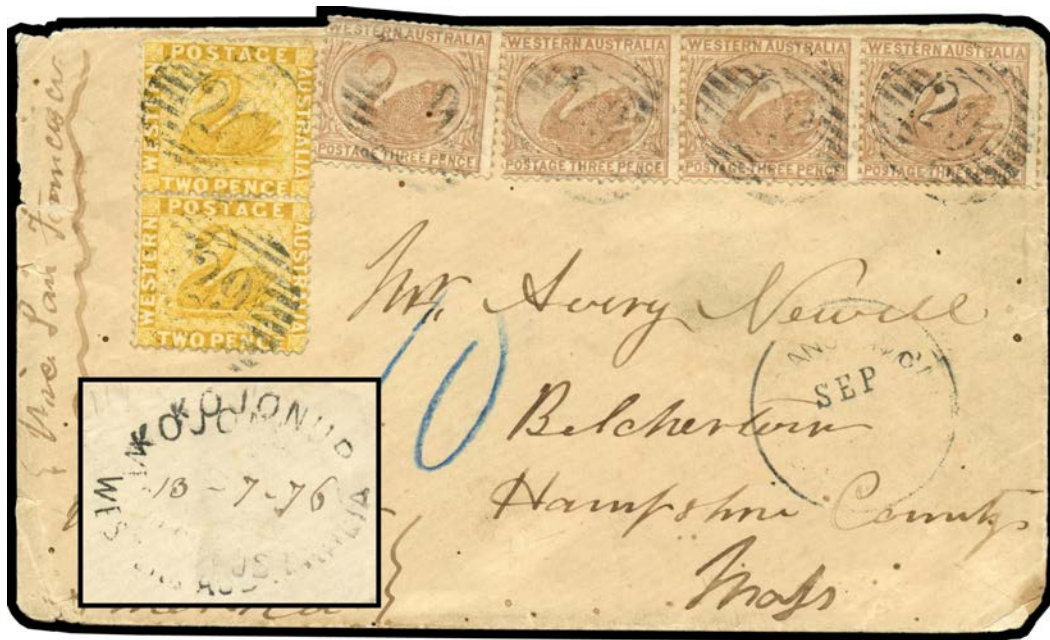 Via San Francisco
POSTAGE
WESTERN
AUSTRALIA
TWO PENCE
POSTAGE
WESTERN
AUSTRALIA
TWO PENCE
29
WESTERN AUSTRALIA
POSTAGE THREE PENCE
WESTERN AUSTRALIA
POSTAGE THREE PENCE
WESTERN AUSTRALIA
POSTAGE THREE PENCE
WESTERN AUSTRALIA
POSTAGE THREE PENCE
Mr. Avery Newell
10
SEP
Belchertown
Hampshire County
Mass
KOJONUP
13-7-76
AUSTRALIA